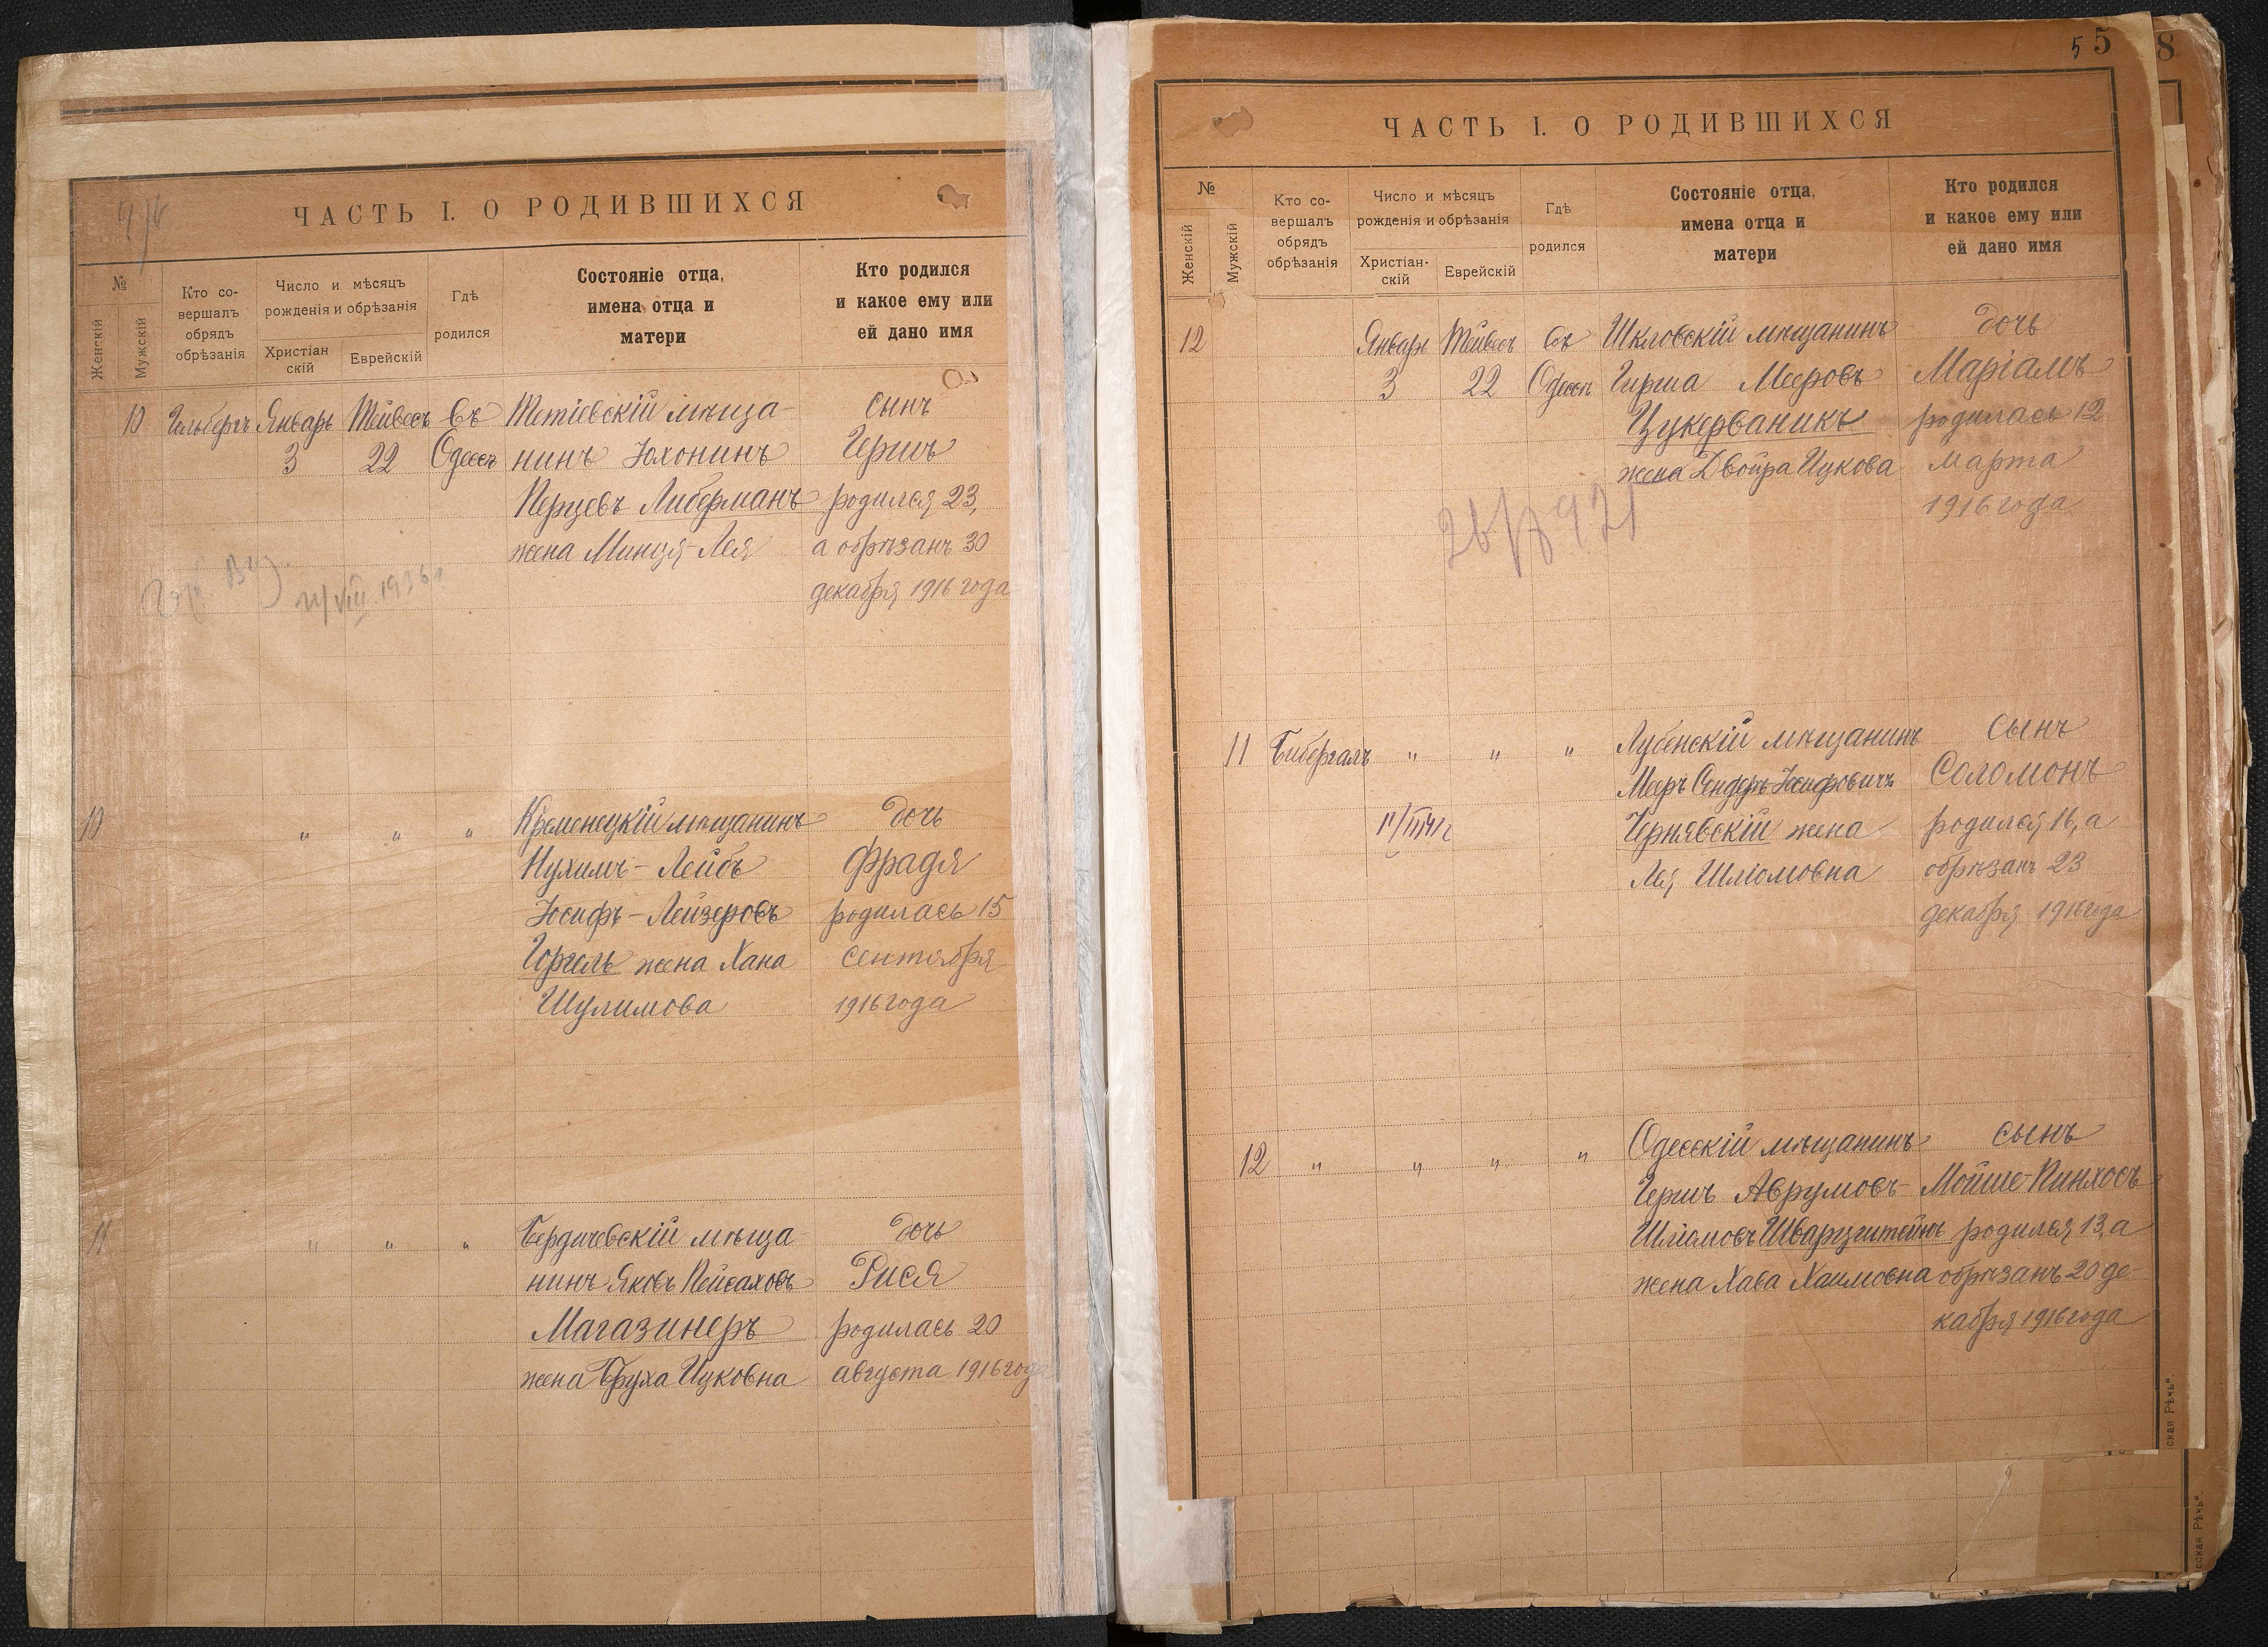 ЧАСТЬ I. О РОДИВШИХСЯ
№
Женскій
Мужскій
Кто со-
вершалъ
обрядъ
обрѣзанія
Число и мѣсяцъ
рожденія и обрѣзанія
Христіан
скій
Еврейскій
Гдѣ
родился
Состояніе отца,
имена отца и
матери
Кто родился
и какое ему или
ей дано имя
10 Гильбергъ Январь Тейвесъ въ Тетіевскій мѣща- сынъ
3 22 Одессѣ нинъ Юхонинъ Гершъ
Перцевъ Либерманъ родился 23,
жена Минця-Лея а обрѣзанъ 30
декабря 1916 года
VIII. 1936 г.
10 " " " Кременецкій мѣщанинъ дочь
Нухимъ-Лейбъ Фрадя
Іосифъ-Лейзеровъ родилась 15
Горгель жена Хана сентября
Шулимова 1916 года
11 " " " Бердичевскій мѣща- дочь
нинъ Яковъ Пейсаховъ Рися
Магазинеръ родилась 20
жена Бруха Ицковна августа 1916 года
5 5 8
ЧАСТЬ I. О РОДИВШИХСЯ
№
Женскій
Мужскій
Кто со-
вершалъ
обрядъ
обрѣзанія
Число и мѣсяцъ
рожденія и обрѣзанія
Христіан-
скій
Еврейскій
Гдѣ
родился
Состояніе отца,
имена отца и
матери
Кто родился
и какое ему или
ей дано имя
12 Январь Тейвесъ въ Шкловскій мѣщанинъ дочь
3 22 Одессѣ Гирша Мееровъ Маріамъ
Цукерваникъ родилась 12
жена Двойра Ицкова марта
1916 года
11 Бибергалъ " " " Лубенскій мѣщанинъ сынъ
Мееръ Сендеръ Іосифовичъ Соломонъ
Чернявскій жена родился 16, а
Лея Шліомовна обрѣзанъ 23
декабря 1916 года
12 " " " " Одесскій мѣщанинъ сынъ
Гершъ Аврумовъ- Мойше-Пинхосъ
Шліомовъ Шварцштейнъ родился 13, а
жена Хава Хаимовна обрѣзанъ 20 де-
кабря 1916 года
ская Рѣчь".
сская Рѣчь".